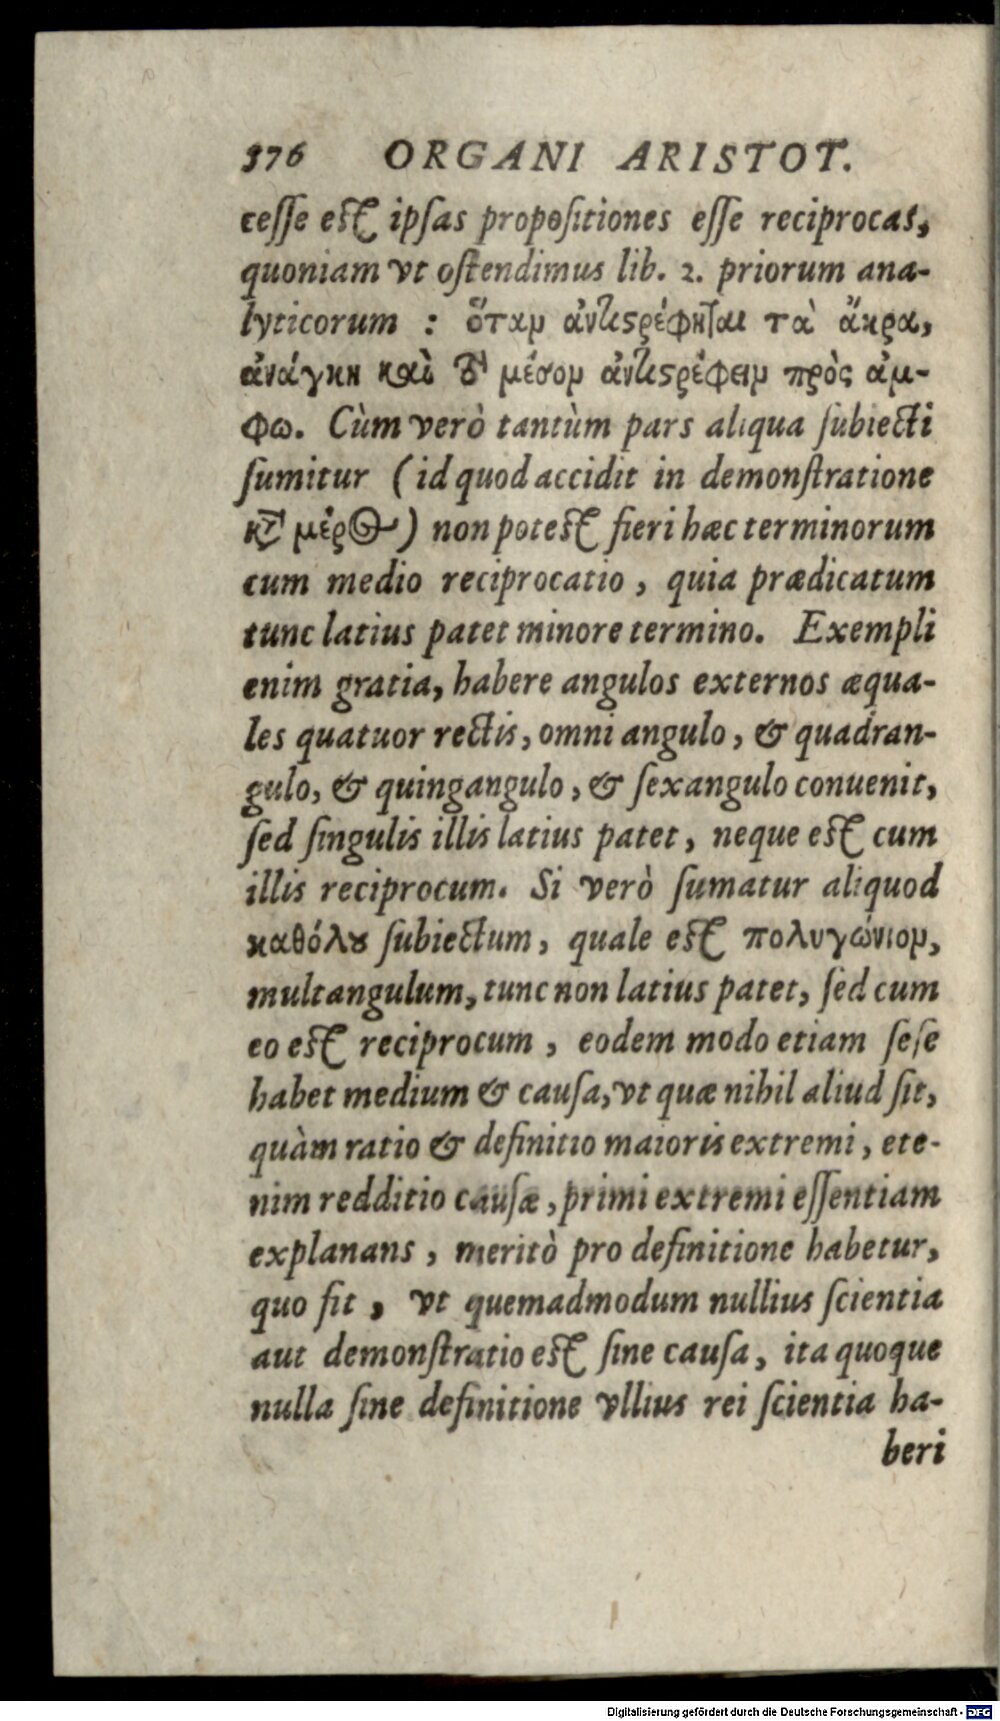 376 ORGANI ARISTOT.
cesse est ipsas propositiones esse reciprocas,
quoniam vt ostendimus lib. 2. priorum ana-
lyticorum : ὅταν ἀντιστρέφηται τὰ ἄκρα,
ἀνάγκη καὶ τὸ μέσον ἀντιστρέφειν πρὸς ἄμ-
φω. Cùm verò tantùm pars aliqua subiecti
sumitur (id quod accidit in demonstratione
κατὰ μέρος) non potest fieri hæc terminorum
cum medio reciprocatio, quia prædicatum
tunc latius patet minore termino. Exempli
enim gratia, habere angulos externos æqua-
les quatuor rectis, omni angulo, & quadran-
gulo, & quingangulo, & sexangulo conuenit,
sed singulis illis latius patet, neque est cum
illis reciprocum. Si verò sumatur aliquod
καθόλου subiectum, quale est πολυγώνιον,
multangulum, tunc non latius patet, sed cum
eo est reciprocum, eodem modo etiam sese
habet medium & causa, vt quæ nihil aliud sit,
quàm ratio & definitio maioris extremi, ete-
nim redditio causæ, primi extremi essentiam
explanans, meritò pro definitione habetur,
quo fit, vt quemadmodum nullius scientia
aut demonstratio est sine causa, ita quoque
nulla sine definitione vllius rei scientia ha-
beri
Digitalisierung gefördert durch die Deutsche Forschungsgemeinschaft - DFG